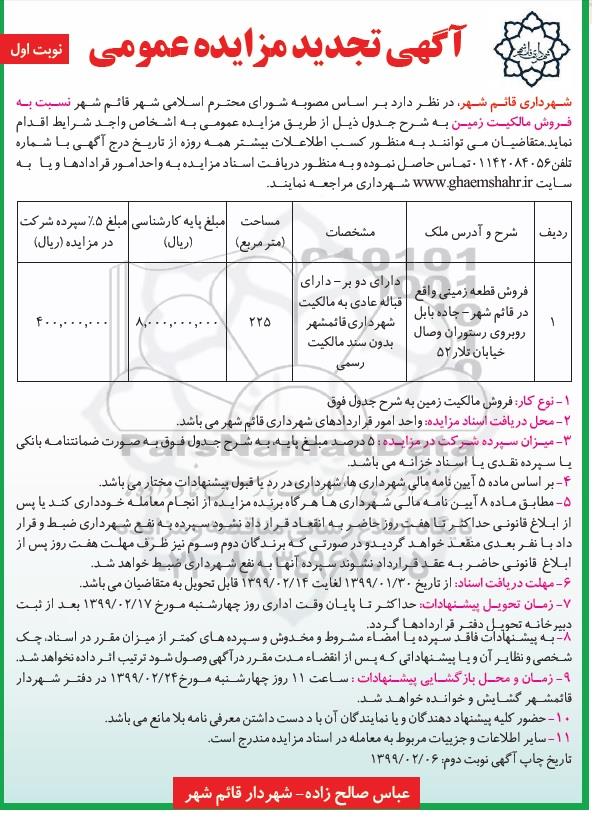 آگهی تجدید مزایده عمومی
نوبت اول
شهرداری قائم شهر، در نظر دارد بر اساس مصوبه شورای محترم اسلامی شهر قائم شهر نسبت به
فروش مالکیت زمین به شرح جدول ذیل از طریق مزایده عمومی به اشخاص واجد شرایط اقدام
نماید.متقاضیان می توانند به منظور کسب اطلاعات بیشتر همه روزه از تاریخ درج آگهی با شماره
تلفن۰۱۱۴۲۰۸۴۰۵۶تماس حاصل نموده و به منظور دریافت اسناد مزایده به واحدامور قرادادها و یا به
سایت www.ghaemshahr.ir شهرداری مراجعه نمایند.
ردیف	شرح و آدرس ملک	مشخصات	مساحت (متر مربع)	مبلغ پایه کارشناسی (ریال)	مبلغ ۵٪ سپرده شرکت در مزایده (ریال)
۱	فروش قطعه زمینی واقع در قائم شهر- جاده بابل روبروی رستوران وصال خیابان تلار۵۲	دارای دو بر- دارای قباله عادی به مالکیت شهرداری قائمشهر بدون سند مالکیت رسمی	۲۲۵	۸,۰۰۰,۰۰۰,۰۰۰	۴۰۰,۰۰۰,۰۰۰
۱- نوع کار: فروش مالکیت زمین به شرح جدول فوق
۲- محل دریافت اسناد مزایده: واحد امور قراردادهای شهرداری قائم شهر می باشد.
۳- میزان سپرده شرکت در مزایده : ۵ درصد مبلغ پایه، به شرح جدول فوق به صورت ضمانتنامه بانکی
یا سپرده نقدی یا اسناد خزانه می باشد.
۴- بر اساس ماده ۵ آیین نامه مالی شهرداری ها، شهرداری در رد یا قبول پیشنهادات مختار می باشد.
۵- مطابق ماده ۸ آیین نامه مالی شهرداری ها هرگاه برنده مزایده از انجام معامله خودداری کند یا پس
از ابلاغ قانونی حداکثر تا هفت روز حاضر به انعقاد قرارداد نشود سپرده به نفع شهرداری ضبط و قرار
داد با نفر بعدی منقعد خواهد گردیدو در صورتی که برندگان دوم وسوم نیز ظرف مهلت هفت روز پس از
ابلاغ قانونی حاضر به عقد قرارداد نشوند سپرده آنها به نفع شهرداری ضبط خواهد شد.
۶- مهلت دریافت اسناد: از تاریخ ۱۳۹۹/۰۱/۳۰ لغایت ۱۳۹۹/۰۲/۱۴ قابل تحویل به متقاضیان می باشد.
۷- زمان تحویل پیشنهادات: حداکثر تا پایان وقت اداری روز چهارشنبه مورخ ۱۳۹۹/۰۲/۱۷ بعد از ثبت
دبیرخانه تحویل دفتر قراردادها گردد.
۸- به پیشنهادات فاقد سپرده یا امضاء مشروط و مخدوش و سپرده های کمتر از میزان مقرر در اسناد، چک
شخصی و نظایر آن و یا پیشنهاداتی که پس از انقضاء مدت مقرر درآگهی وصول شود ترتیب اثر داده نخواهد شد.
۹- زمان و محل بازگشایی پیشنهادات : ساعت ۱۱ روز چهارشنبه مورخ۱۳۹۹/۰۲/۲۴ در دفتر شهردار
قائمشهر گشایش و خوانده خواهد شد.
۱۰- حضور کلیه پیشنهاد دهندگان و یا نمایندگان آن با د دست داشتن معرفی نامه بلا مانع می باشد.
۱۱- سایر اطلاعات و جزییات مربوط به معامله در اسناد مزایده مندرج است.
تاریخ چاپ آگهی نوبت دوم: ۱۳۹۹/۰۲/۰۶
عباس صالح زاده- شهردار قائم شهر